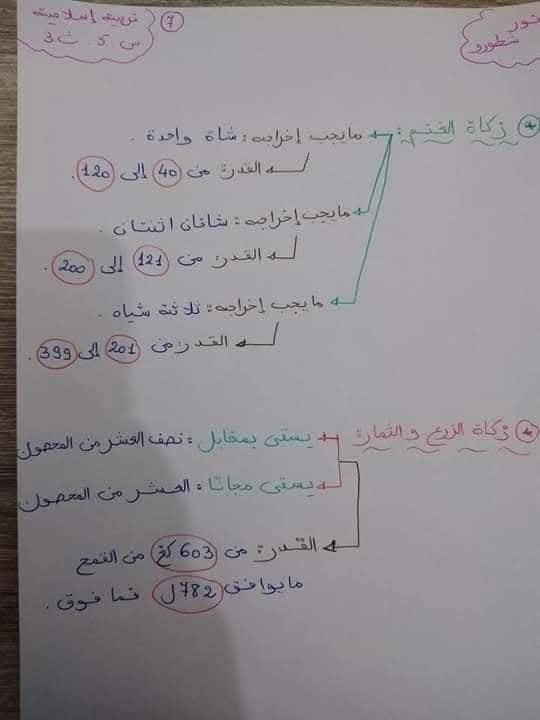 تربية إسلامية
س 5. ث 3
7
نور
شطورو
* زكاة الغنم: ما يجب إخراجه: شاة واحدة.
القدر: من 40 إلى 120.
ما يجب إخراجه: شاتان اثنتان.
القدر: من 121 إلى 200.
ما يجب إخراجه: ثلاثة شياه.
القدر: من 201 إلى 399.
* زكاة الزرع والثمار: يسقى بمقابل: نصف العشر من المحصول
يسقى مجانا: العشر من المحصول
القدر: من 603 كغ من القمح
ما يوافق 782 ل فما فوق.